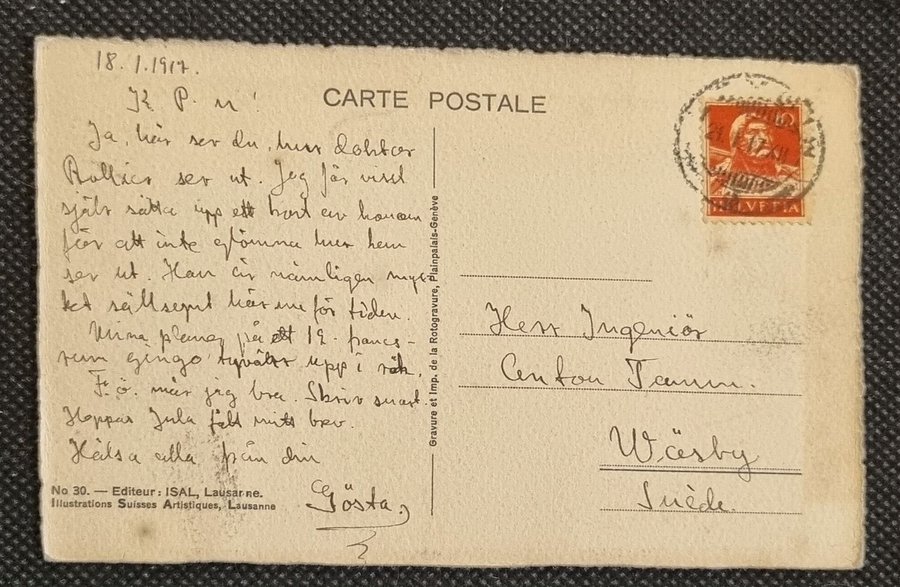 18.1.1917.
K P
CARTE POSTALE
Ja, här ser du, hur doktor
Rollier ser ut. Jeg får visst
själv sätta upp ett kort av honom
för att inte glömma hur han
ser ut. Han är nämligen myc-
ket sällsynt här nu för tiden.
Mina planer på ett 12-francs-
rum gingo tyvärr upp i rök.
F.ö. mår jag bra. Skriv snart.
Hoppas Jula fått mitt brev.
Hälsa alla från din
Gösta.
No 30. — Editeur: ISAL, Lausanne.
Illustrations Suisses Artistiques, Lausanne
Gravure et Imp. de la Rotogravure, Plainpalais-Genève
10
HELVETIA
Herr Ingeniör
Anton Tamm.
Wäsby
Suède.